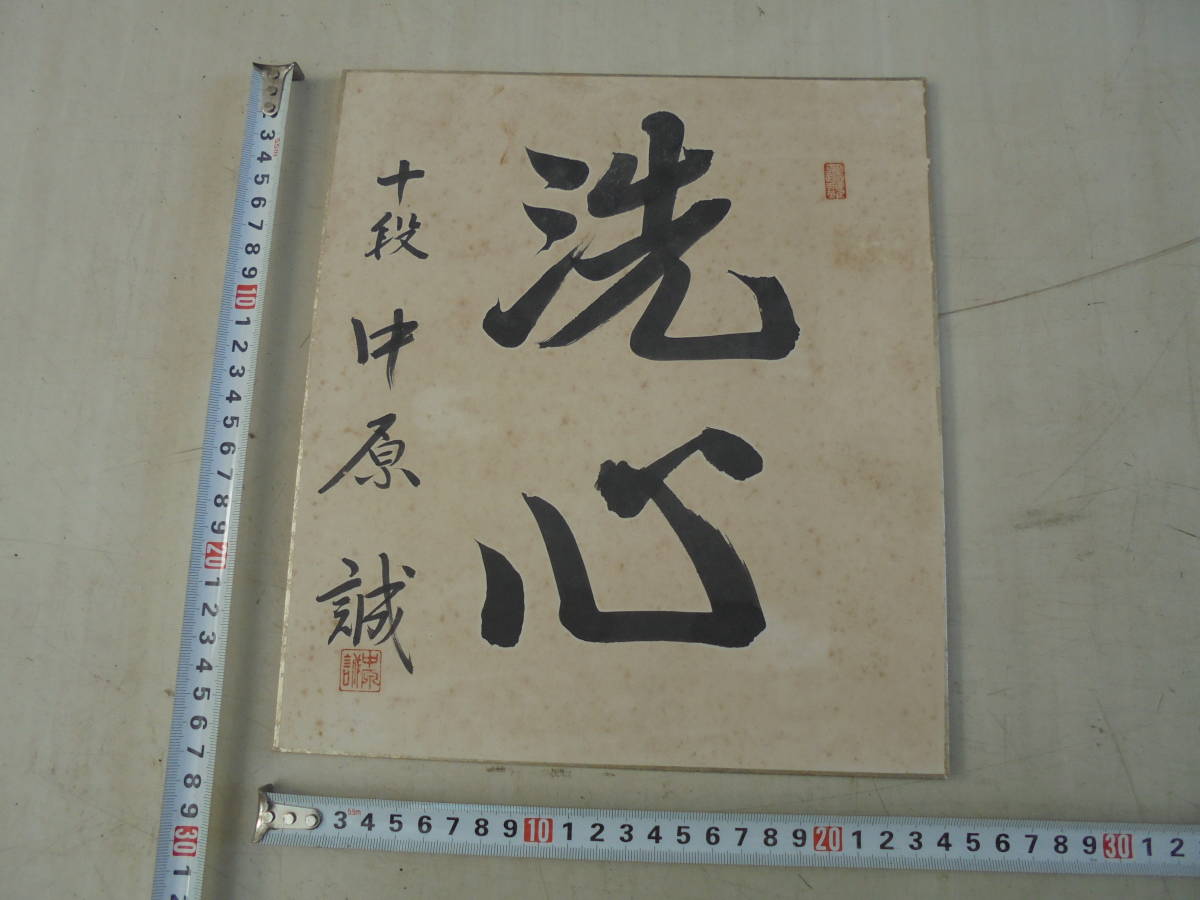 洗心
十段 中原 誠
中原誠
3 4 5 6 7 8 9 10 1 2 3 4 5 6 7 8 9 20 1 2 3 4 5 6 7 8 9 30 1 2
3 4 5 6 7 8 9 10 1 2 3 4 5 6 7 8 9 20 1 2 3 4 5 6 7 8 9 30 1 2